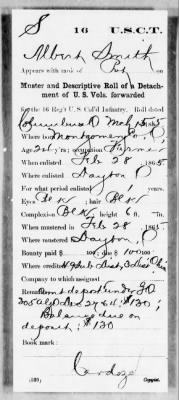 S 16 U.S.C.T.
Albert Smith
Appears with rank of Pvt on
Muster and Descriptive Roll of a Detach-
ment of U. S. Vols. forwarded
for the 16 Reg't U.S. Col'd Infantry. Roll dated
Columbus O Mch 1865
Where born Montgomery Co., O
Age 21 y'rs; occupation Farmer
When enlisted Feb 28, 1865.
Where enlisted Dayton, O
For what period enlisted 1 years.
Eyes Blk; hair Blk
Complexion Blk; height 6 ft. in.
When mustered in Feb 28, 1865.
Where mustered Dayton, O
Bounty paid $ 100; due $ 100
Where credited 3 Dist Ohio
Company to which assigned
Remarks:
$130;
Balance due on
deposit: $130
Book mark:
Cardoza
(339) Copyist.